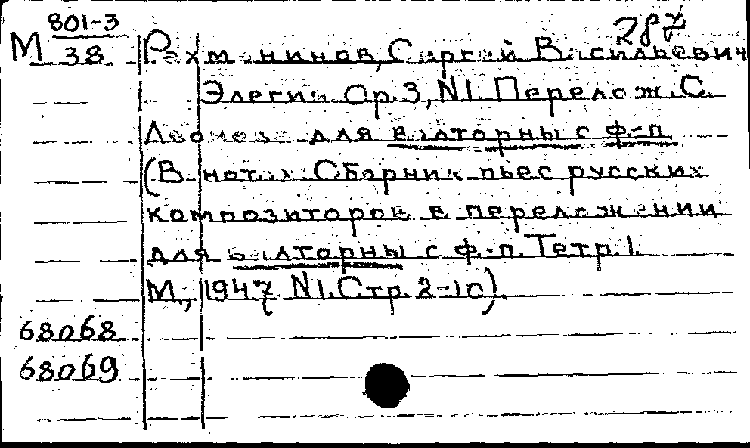 287
М 801-3/38
Рахманинов, Сергей Васильевич
Элегия Ор.3, N1. Перелож. С.
для валторны с ф.-п.
(В нотах: Сборник пьес русских
композиторов в переложении
для валторны с ф.-п. Тетр.1.
М., 1947 N1. Стр. 2-10).
68068
68069